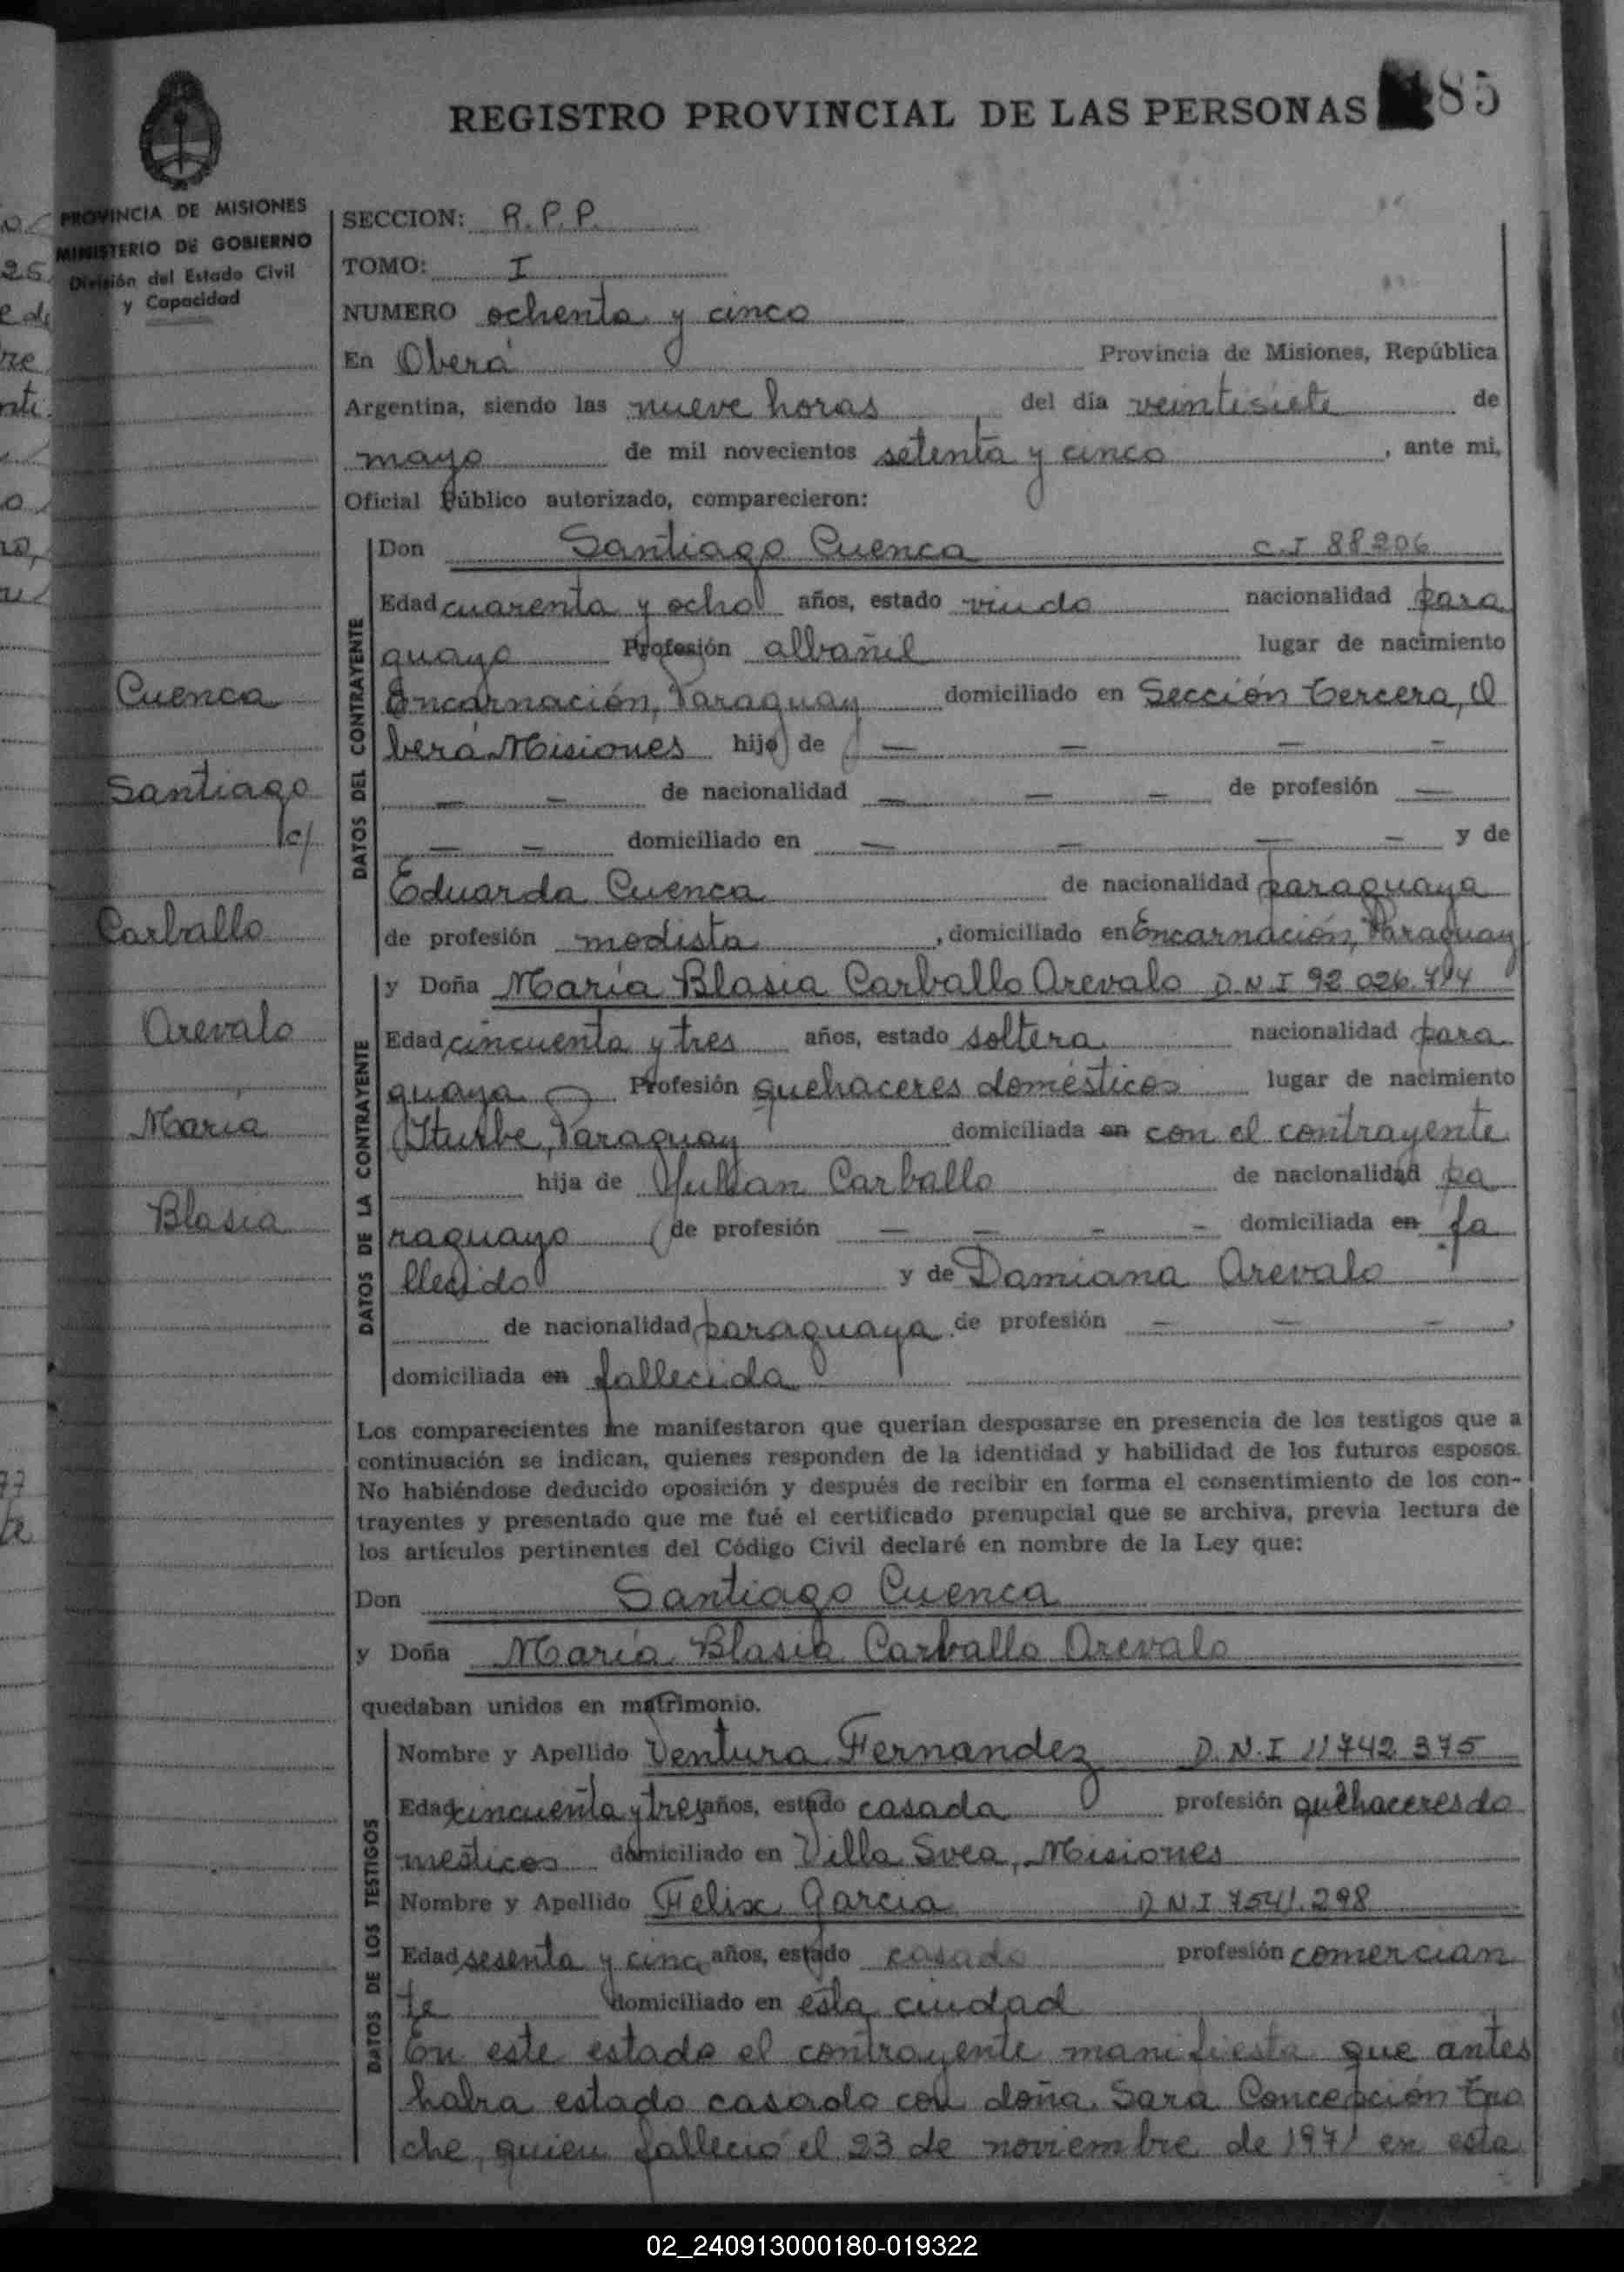 REGISTRO PROVINCIAL DE LAS PERSONAS 85
PROVINCIA DE MISIONES
MINISTERIO DE GOBIERNO
División del Estado Civil
y Capacidad
SECCION: R.P.P.
TOMO: I
NUMERO ochenta y cinco
En Oberá Provincia de Misiones, República
Argentina, siendo las nueve horas del día veintisiete de
mayo de mil novecientos setenta y cinco, ante mi,
Oficial Público autorizado, comparecieron:
Cuenca
Santiago
c/
Carballo
Arevalo
María
Blasia
DATOS DEL CONTRAYENTE
Don Santiago Cuenca C.I 88206
Edad cuarenta y ocho años, estado viudo nacionalidad para
guayo Profesión albañil lugar de nacimiento
Encarnación, Paraguay domiciliado en Sección Tercera, O
berá Misiones hijo de — — — —
— — de nacionalidad — — — de profesión —
— — domiciliado en — — — — y de
Eduarda Cuenca de nacionalidad paraguaya
de profesión modista, domiciliado en Encarnación, Paraguay
DATOS DE LA CONTRAYENTE
y Doña María Blasia Carballo Arevalo D.N.I 92.026.714
Edad cincuenta y tres años, estado soltera nacionalidad para
guaya Profesión quehaceres domésticos lugar de nacimiento
Iturbe, Paraguay domiciliada en con el contrayente
hija de Julian Carballo de nacionalidad pa
raguayo de profesión — — — — domiciliada en fa
llecido y de Damiana Arevalo
de nacionalidad paraguaya de profesión — — —,
domiciliada en fallecida
Los comparecientes me manifestaron que querían desposarse en presencia de los testigos que a
continuación se indican, quienes responden de la identidad y habilidad de los futuros esposos.
No habiéndose deducido oposición y después de recibir en forma el consentimiento de los con-
trayentes y presentado que me fué el certificado prenupcial que se archiva, previa lectura de
los artículos pertinentes del Código Civil declaré en nombre de la Ley que:
Don Santiago Cuenca
y Doña María Blasia Carballo Arevalo
quedaban unidos en matrimonio.
DATOS DE LOS TESTIGOS
Nombre y Apellido Ventura Fernandez D.N.I 11742.375
Edad cincuenta y tres años, estado casada profesión quehaceres do
mesticos domiciliado en Villa Svea, Misiones
Nombre y Apellido Felix Garcia D.N.I 7541.298
Edad sesenta y cinc años, estado casado profesión comercian
te domiciliado en esta ciudad
En este estado el contrayente manifiesta que antes
habia estado casado con doña Sara Concepción
che, quien falleció el 23 de noviembre de 1971 en esta
02_240913000180-019322